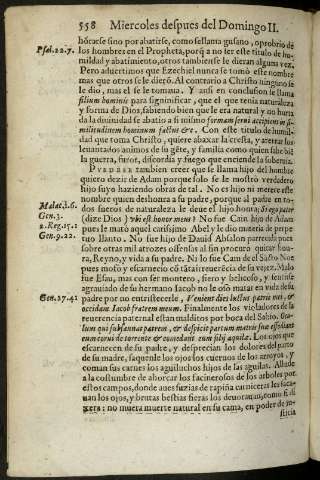 558 Miercoles despues del Domingo II.
hõrarse sino por abatirse, como se llama gusano, oprobrio dē
Psal. 22.7. los hombres en el Propheta, porq̃ a no ser este titulo de hu-
mildad y abatimiento, otros tambien se le dieran alguna vez.
Pero aduertimos que Ezechiel nunca se tomò este nombre
mas que otros se le diero. Al contrario a Christo ninguno se
le dio, mas el se le tomaua. Y assi en conclusion se llama
filium hominis para significar, que el que tenia naturaleza
y forma de Dios, sabiendo bien que le era natural y no hurta
da la diuinidad se abatio a si mismo formam serui accipiens in si-
militudinem hominum factus &c. Con este titulo de humil-
dad que toma Christo, quiere abaxar la cresta, y aterrar los
leuantados animos de su gēte, y familia como quien sabe biē
la guerra, furor, discordia y fuego que enciende la soberuia.
Puedese tambien creer que se llama hijo del hombre
quiero dezir de Adam porque solo se le mostrò verdadero
hijo suyo haziendo obras de tal. No es hijo ni merece este
nombre quien deshonra a su padre, porque al padre en to-
Malac. 1.6. dos fueros de naturaleza le deue el hijo honra; Si ego pater
Gen. 3. (dize Dios) vbi est honor meus? No fue Cain hijo de Adam
2. Reg. 15.1 pues le matò aquel carissimo Abel y le dio materia de perpe
Gen. 9.22. tuo llanto. No fue hijo de Dauid Absalon parecida pues
sobre otras mil atrozes offensas al fin procurò quitar hon-
ra, Reyno, y vida a su padre. Ni lo fue Cam de el Santo Noe
pues mofò y escarnecio cõ tãta irreuerēcia de su vejez. Malo
fue Esau, mas con ser montero, fiero y belicoso, y sentirse
agrauiado de su hermano Iacob no le osò matar en vida del
Gen. 27.41 padre por no entristecerle, Venient dies luctus patris mei, &
occidam Iacob fratrem meum. Finalmente los violadores de la
reuerencia paternal estan malditos por boca del Sabio. Ocu-
lum qui subsannat patrem, & despicit partum matris suæ effodiant
eum corui de torrente & comedant eum filij aquilæ. Los ojos que
escarnecen de su padre, y desprecian los dolores del parto
de su madre, saquenle los ojos los cueruos de los arroyos, y
coman sus carnes los aguiluchos hijos de las aguilas. Allude
a la costumbre de ahorcar los facinerosos de los arboles por
estos campos, donde aues suzias de rapiña carniceras les saca-
uan los ojos, y brutas bestias fieras los deuorauan, como si di
xera: no muera muerte natural en su cama, en poder de ju-
sticia